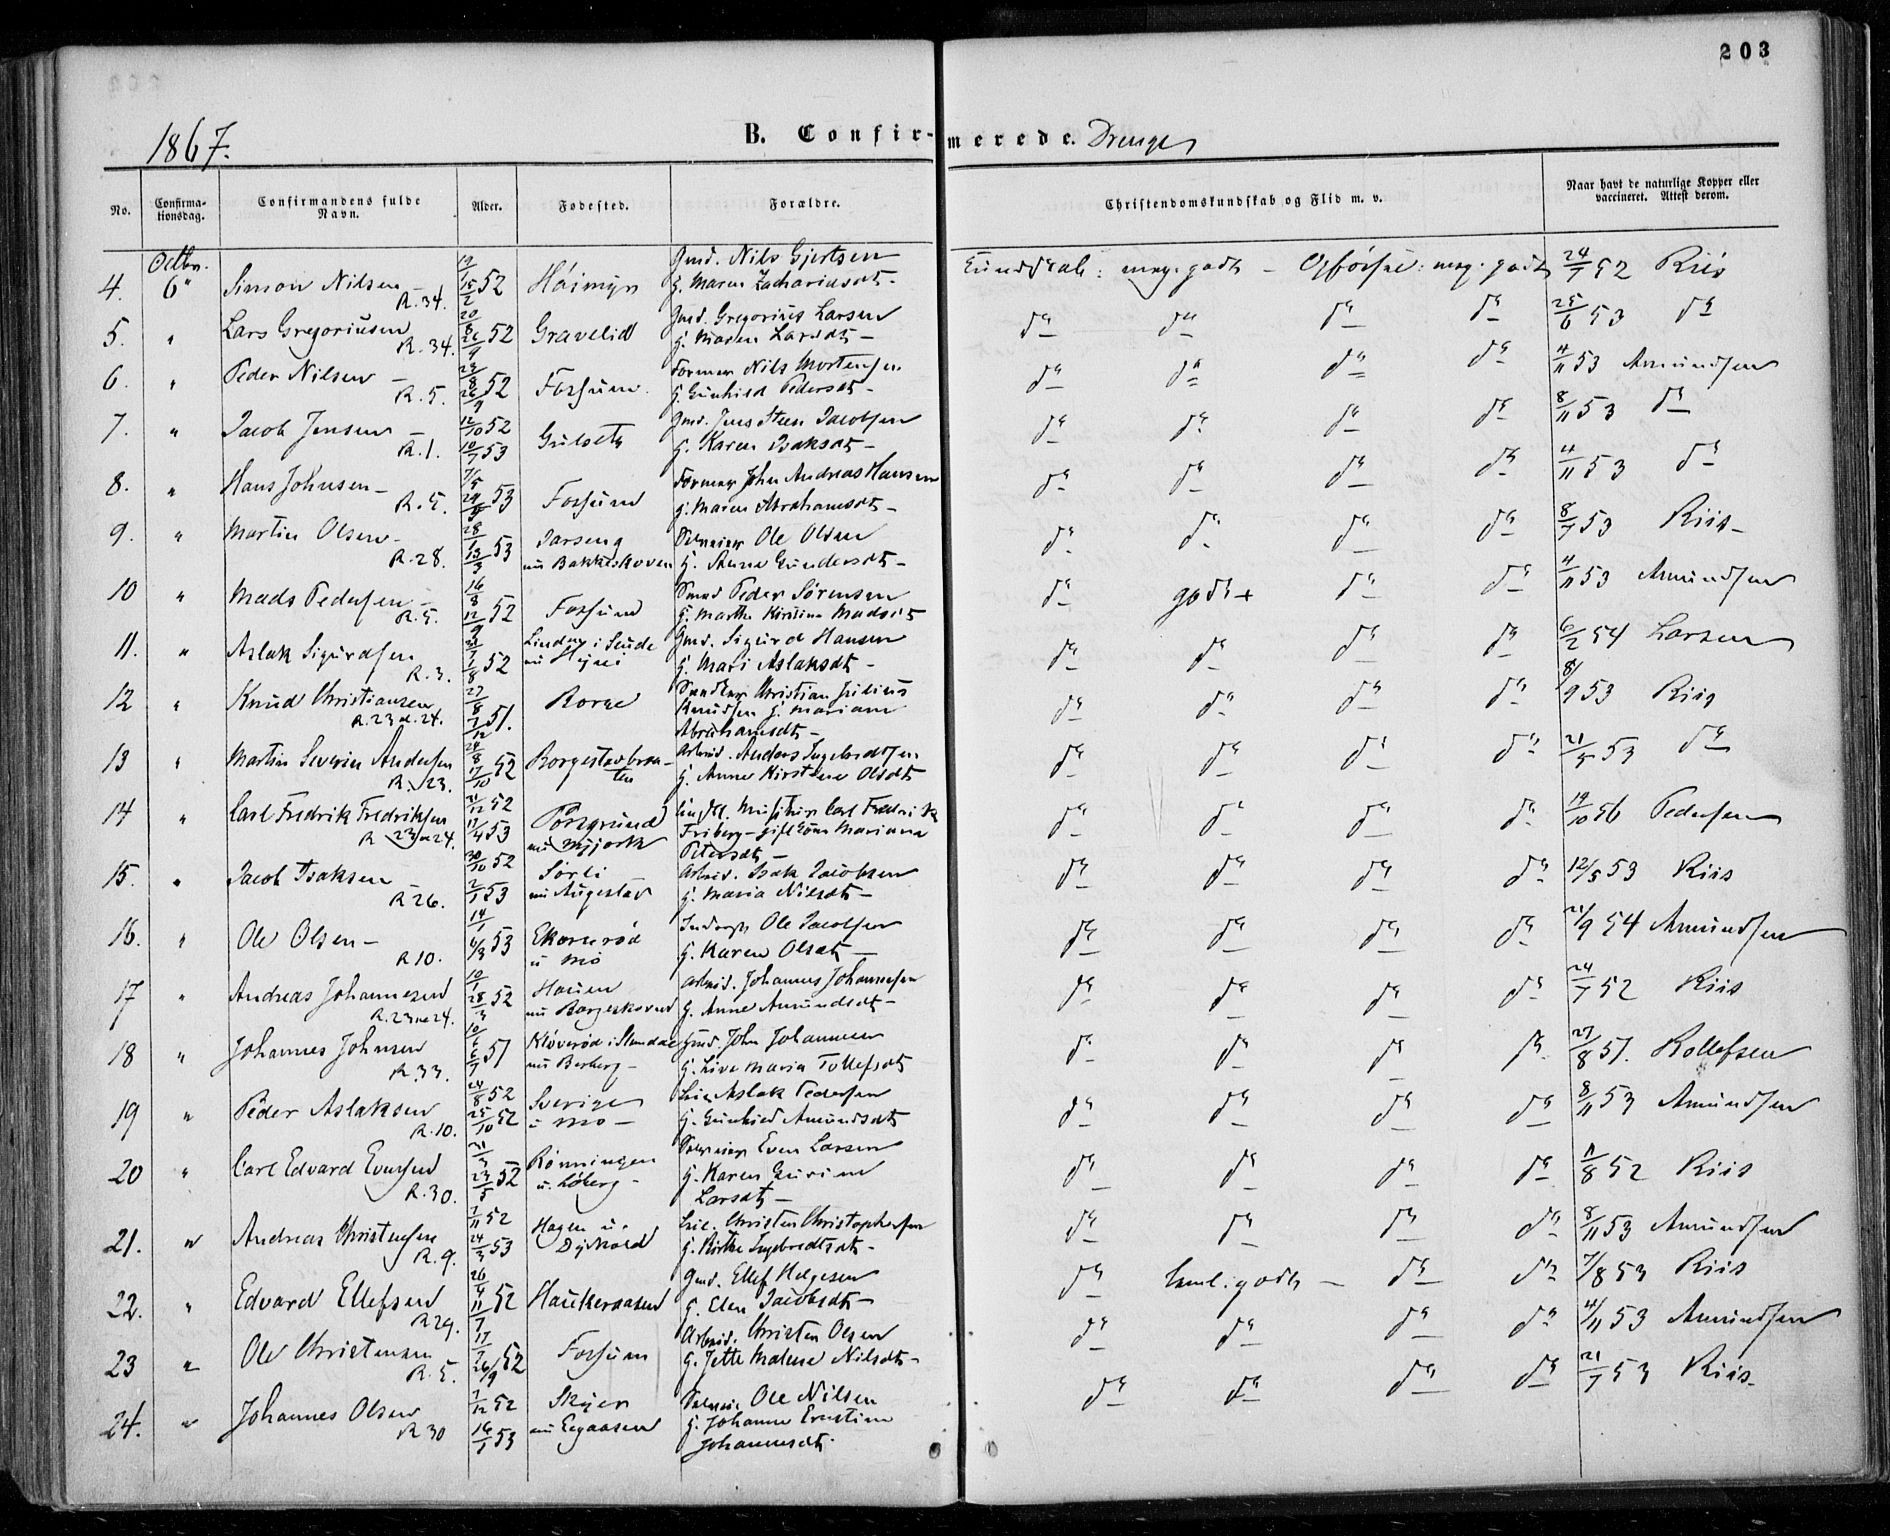 203
1867.
B. Confirmerede. Drenge
No. Confirmationsdag. Confirmandens fulde Navn. Alder. Fødested. Forældre. Christendomskundskab og Flid m. v. Naar havt de naturlige Kopper eller vaccineret. Attest derom.
Octbr.
4. 6" Simon Nilsen R. 34. 15/2 52 Gmd. Nils Gjertsen g. Maren Zachariasdt. Kundskab: meg. godt – Opførsel: meg. godt 24/7 52 Riis
5. " Lars Gregoriusen R. 34. 52 Gravelid Gmd. Gregorius Larsen g. Maren Larsdt. do do do do 25/6 53 do
6. " Peder Nilsen R. 5. 52 Fossum Former Nils Mortensen g. Gunhild Pedersdt. do do do do 4/11 53 Amundsen
7. " Jacob Jensen R. 1. 12/10 52 10/7 53 Gulseth Gmd. Jens Steen Jacobsen g. Karen Isaksdt. do do do do 8/11 53 do
8. " Hans Johnsen R. 5. 53 Fossum Former John Andreas Hansen g. Maren Abrahamsdt. do do do do 4/11 53 do
9. " Martin Olsen R. 28. 28/1 13/3 53 nu Bakkeskoven Ole Olsen g. Anne Gundersdt. do do do do 8/7 53 Riis
10 " Mads Pedersen R. 5. 16/8 12/9 52 Fossum Smed Peder Sørensen g. Marthe Kirstine Madsdt. do godt + do do 4/11 53 Amundsen
11. " Aslak Sigurdsen R. 3. 1/8 52 Gmd. Sigurd Hansen g. Mari Aslaksdt. do do do do 6/2 54 Larsen
12 " Knud Christiansen R. 23 & 24. 27/8 7/12 51. Borge Christian Julius Knudsen g. Mariane Abrahamsdt. do do do do 8/9 53 Riis
13 " Martin Severin Andersen R. 23. 24/8 17/10 52 Borgestadbraaten Arbeid. Anders Ingebredtsen g. Anne Kirstine Olsdt do do do do 21/5 53 do
14 " Carl Fredrik Fredriksen R 23 & 24. 21/12 52 17/4 53 Porsgrund nu Carl Fredrik Friberg – gift Marianne Petersdt. do do do do 19/10 56 Pedersen
15. " Jacob Isaksen R 26. 30/10 52 53 Sørli nu Augestad Arbeid. Isak Jacobsen g. Maria Nilsdt. do do do do 12/5 53 Riis
16. " Ole Olsen R 10. 14/1 6/3 53 Ekornrød u Mo Ole Jacobsen g. Karen Olsdt do do do do 21/9 54 Amundsen
17 " Andreas Johannesen R. 23 & 24. 10/1 28/3 52 Hauen nu Borgeskoven Arbeid. Johannes Johannesen g. Anne Amundsdt. do do do do 24/7 52 Riis
18 " Johannes Johnsen R. 33. 10/6 6/7 51 Kløverød i Slemdal nu Berberg Gmd. John Johannesen g. Live Maria Tollefsdt do do do do 27/8 51. Rollefsen
19 " Peder Aslaksen R. 10. 24/8 52 25/10 52 Sverige u Mo Aslak Pedersen g. Gunhild Amundsdt do do do do 8/11 53 Amundsen
20 " Carl Edvard Evensen R. 30. 21/3 23/5 52 Rønningen u. Løberg Even Larsen g. Karen Gurine Larsdt do do do do 11/8 52 Riis
21. " Andreas Christensen R. 9. 7/11 52 24/3 53 Hagen u. Christen Christophersen g. Kirthe Ingebredtsdt. do do do do 8/11 53 Amundsen
22. " Edvard Ellefsen R 29. 26/4 11/7 52 Haukeraasen Gmd. Ellef Helgesen g. Elen Jacobsdt do teml: godt do do 7/8 53 Riis
23 " Ole Christensen R. 5. 17/7 26/9 52 Fossum Arbeid. Christen Olsen g. Jette Malene Nilsdt do do do do 4/11 53 Amundsen
24. " Johannes Olsen R 30 7/12 52 53 nu Ole Nilsen g. Johanne Ernstine Johannesdt. do do do do 21/7 53 Riis